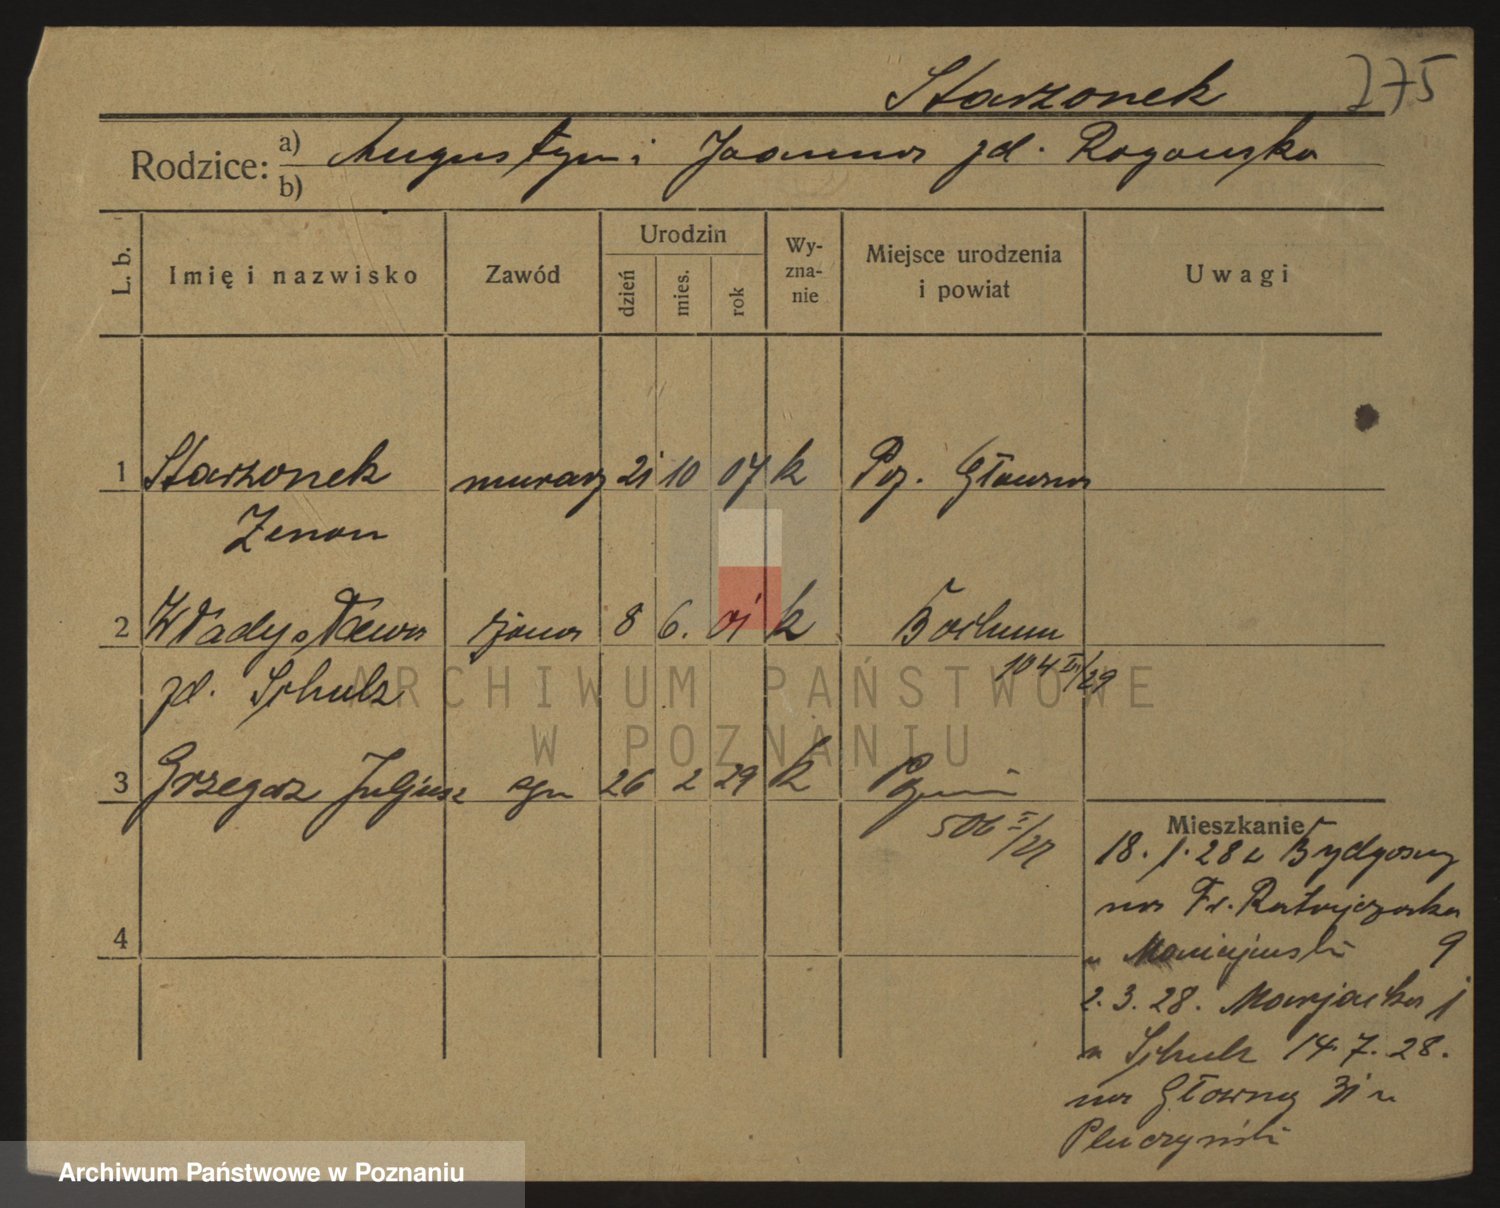 Starzonek 275
Rodzice: a) Augustyn i Joanna zd. Rogowska
b)
L. b. Imię i nazwisko Zawód Urodzin dzień mies. rok Wy-zna-nie Miejsce urodzenia i powiat Uwagi
1 Starzonek murarz 21 10 07 k Poz. Główna
Zenon
2 Władysława żona 8 6. 01 k Bochum
zd. Schulz 104 III/29
3 Grzegorz Juljusz syn 26 2 29 k
506 I/29
Mieszkanie
18. 1. 28 z Bydgoszczy
na Fr. Ratajczaka
u Maciejewski 9
2. 3. 28. Marjacka 1
u Schulz 14. 7. 28.
na Główną 31 u
Pluczyński
4
ARCHIWUM PAŃSTWOWE
W POZNANIU
Archiwum Państwowe w Poznaniu